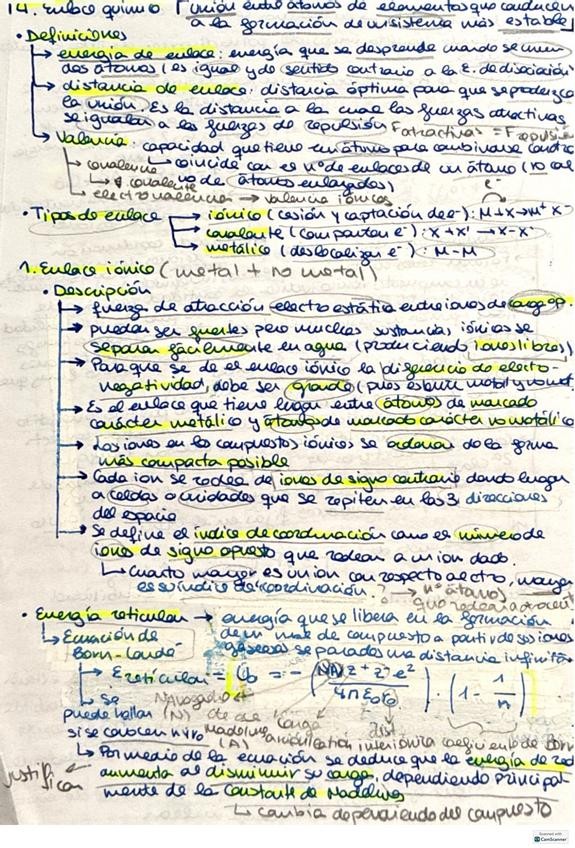 14. Enlace químico [unión entre átomos de elementos que conducen
a la formación de un sistema más estable]
• Definiciones
→ energía de enlace: energía que se desprende cuando se unen
dos átomos (es igual y de sentido contrario a la E. de disociación
→ distancia de enlace: distancia óptima para que se produzca
la unión. Es la distancia a la cual las fuerzas atractivas
se igualan a las fuerzas de repulsión F atractivas = F repulsión
→ Valencia: capacidad que tiene un átomo para combinarse con otro
→ covalencia ↳ coincide con el nº de enlaces de un átomo (no con el
↳ covalente no de átomos enlazados)
↳ electrovalencia → valencia iónicos
• Tipos de enlace → iónico (cesión y captación de e⁻): M+X→M⁺ X⁻ e⁻
→ covalente (comparten e⁻): X+X' → X-X'
→ metálico (deslocalizan e⁻): M-M
1. Enlace iónico (metal + no metal)
• Descripción
→ fuerza de atracción electroestática entre iones de carga op.
→ pueden ser fuertes pero muchas sustancias iónicas se
separan fácilmente en agua (produciendo iones libres)
→ Para que se dé el enlace iónico la diferencia de electro-
negatividad, debe ser grande (pues es entre metal y no met.
→ Es el enlace que tiene lugar entre átomos de marcado
carácter metálico y átomos de marcado carácter no metálico
→ Los iones en los compuestos iónicos se ordenan de la forma
más compacta posible
→ Cada ion se rodea de iones de signo contrario dando lugar
a celdas o unidades que se repiten en las 3 direcciones
del espacio
→ Se define el índice de coordinación como el número de
iones de signo opuesto que rodean a un ion dado.
↳ Cuanto mayor es un ion con respecto al otro, mayor
es su índice de coordinación. ? → nº átomos
que rodean
• Energía reticular → energía que se libera en la formación
↳ Ecuación de de un mol de compuesto a partir de sus iones
Born-Landé gaseosos separados una distancia infinita
→ E reticular = U₀ = - (NAZ⁺Z⁻e² / 4πε₀r₀) · (1 - 1/n)
↳ Se Navogadro
puede hallar (N) cte de carga dist
si se conocen nº Madelung (A) coeficiente de Born
↳ Por medio de la ecuación se deduce que la energía de red
aumenta al disminuir su carga, dependiendo principal-
mente de la constante de Madelung
justifican
↳ cambia dependiendo del compuesto
Scanned with
CamScanner